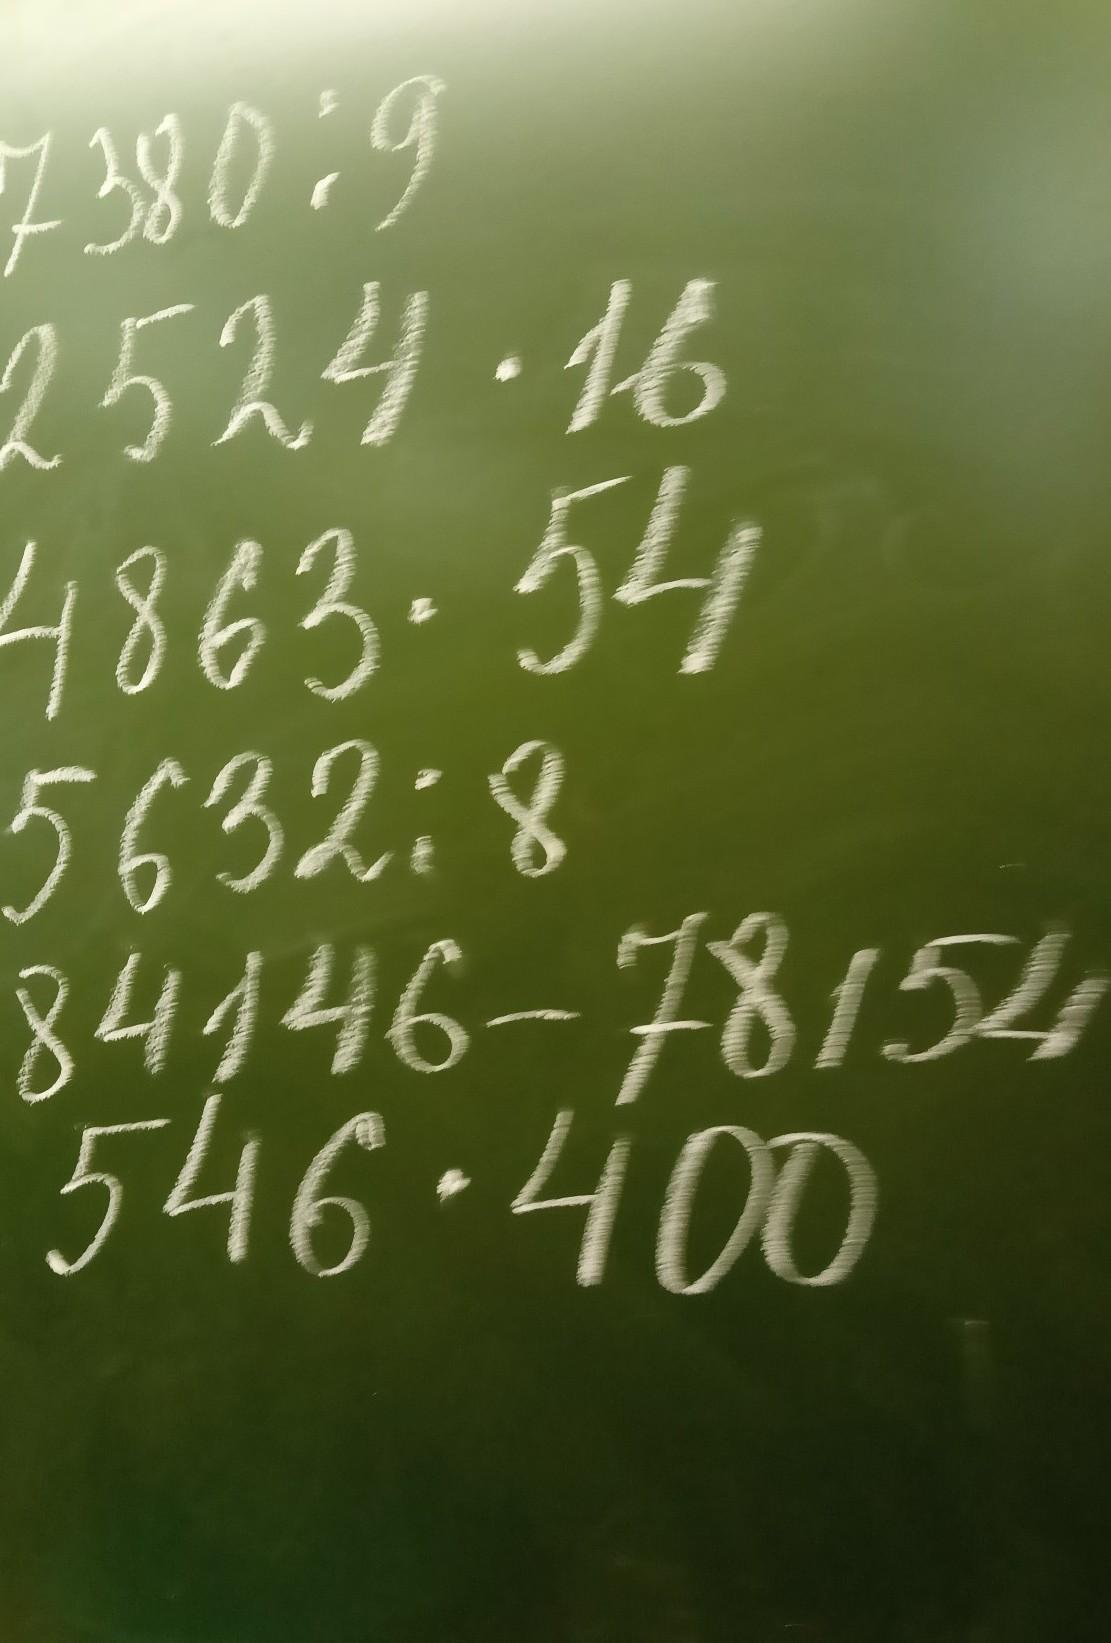 7380:9
2524·16
4863·54
5632:8
84146-78154
546·400